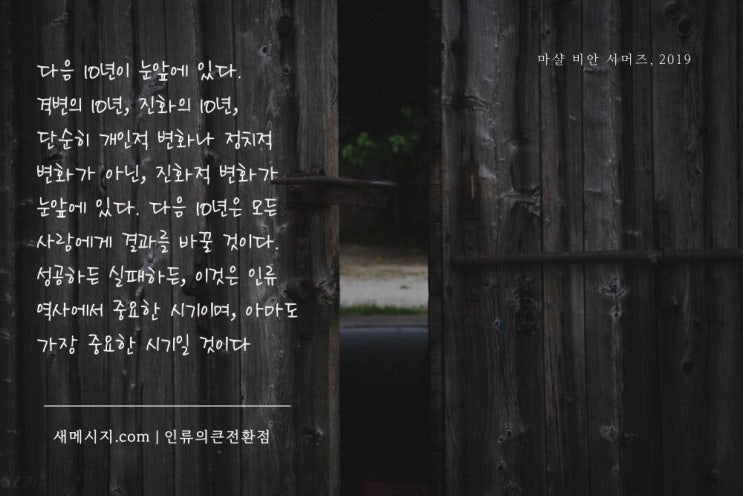 다음 10년이 눈앞에 있다.
격변의 10년, 진화의 10년,
단순히 개인적 변화나 정치적
변화가 아닌, 진화적 변화가
눈앞에 있다. 다음 10년은 모든
사람에게 결과를 바꿀 것이다.
성공하든 실패하든, 이것은 인류
역사에서 중요한 시기이며, 아마도
가장 중요한 시기일 것이다
마샬 비안 서머즈, 2019
새메시지.com | 인류의큰전환점